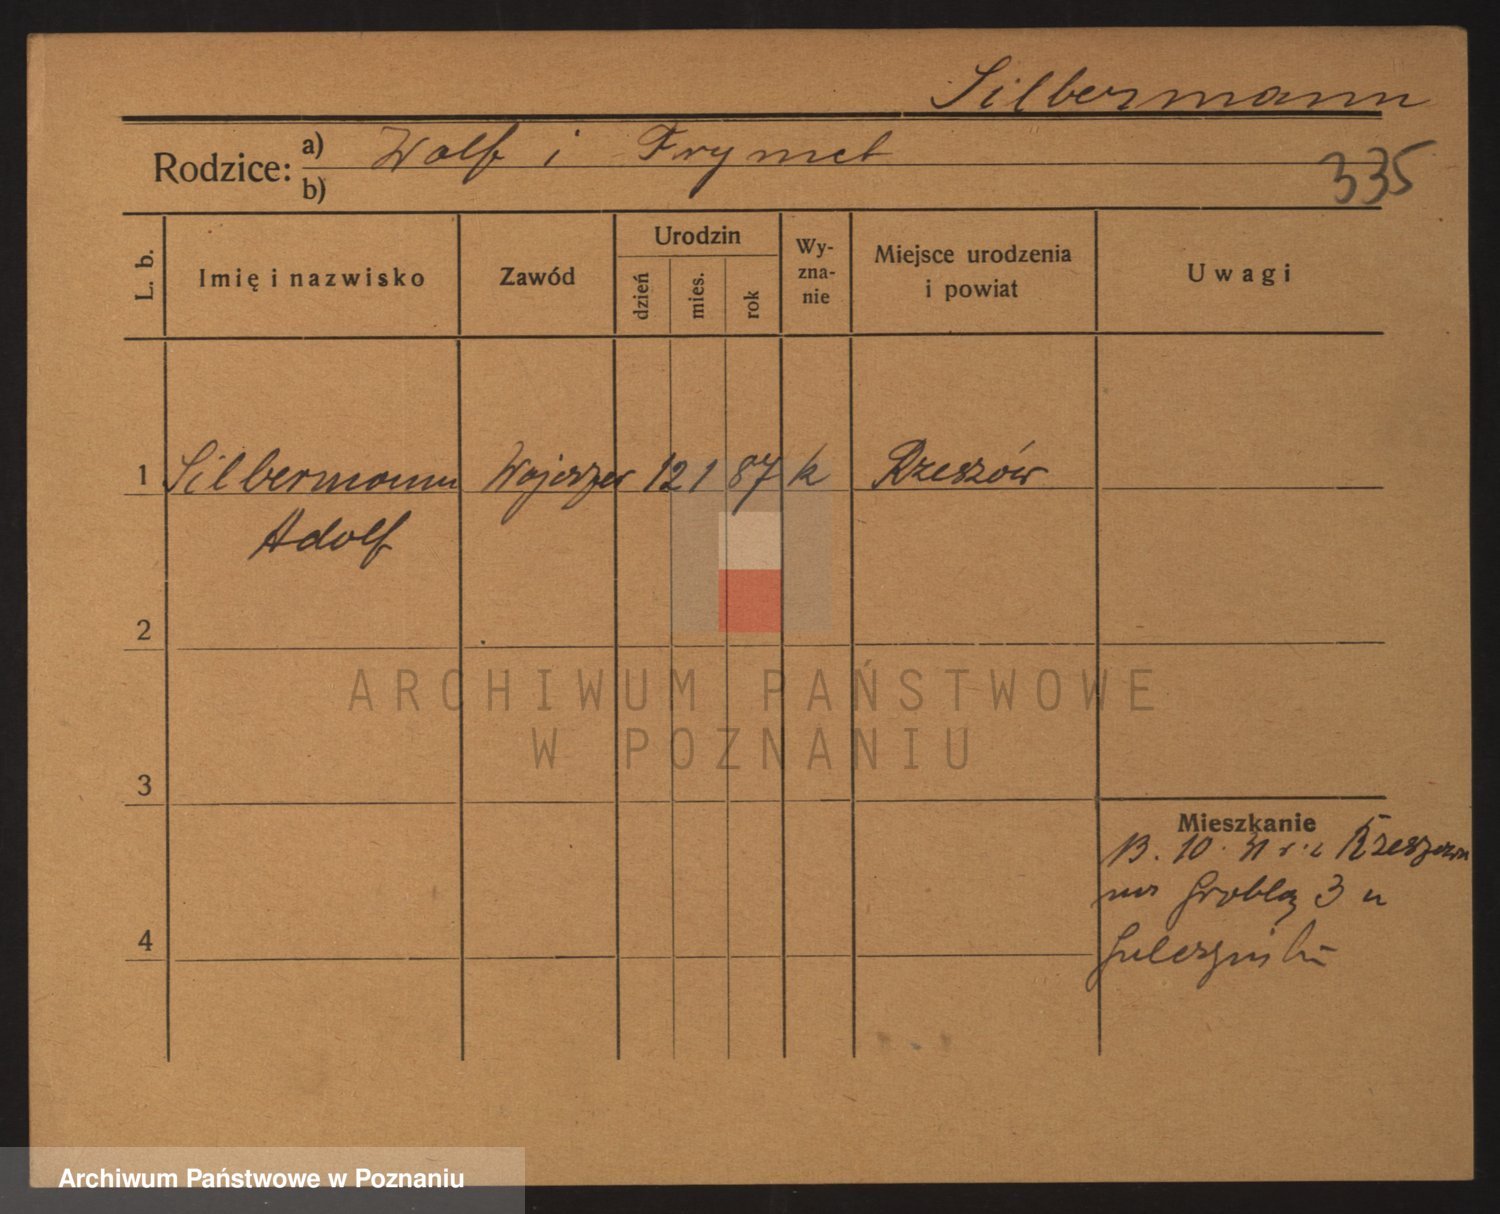 Silbermann
Rodzice: a) Wolf i Frymet
b)
335
L. b.
Imię i nazwisko
Zawód
Urodzin
dzień
mies.
rok
Wy-
zna-
nie
Miejsce urodzenia
i powiat
Uwagi
1 Silbermann 12 1 87 k Rzeszów
Adolf
2
3
4
Mieszkanie
13. 10. 31 r. z Rzeszowa
na Groblą 3 u
ARCHIWUM PAŃSTWOWE
W POZNANIU
Archiwum Państwowe w Poznaniu